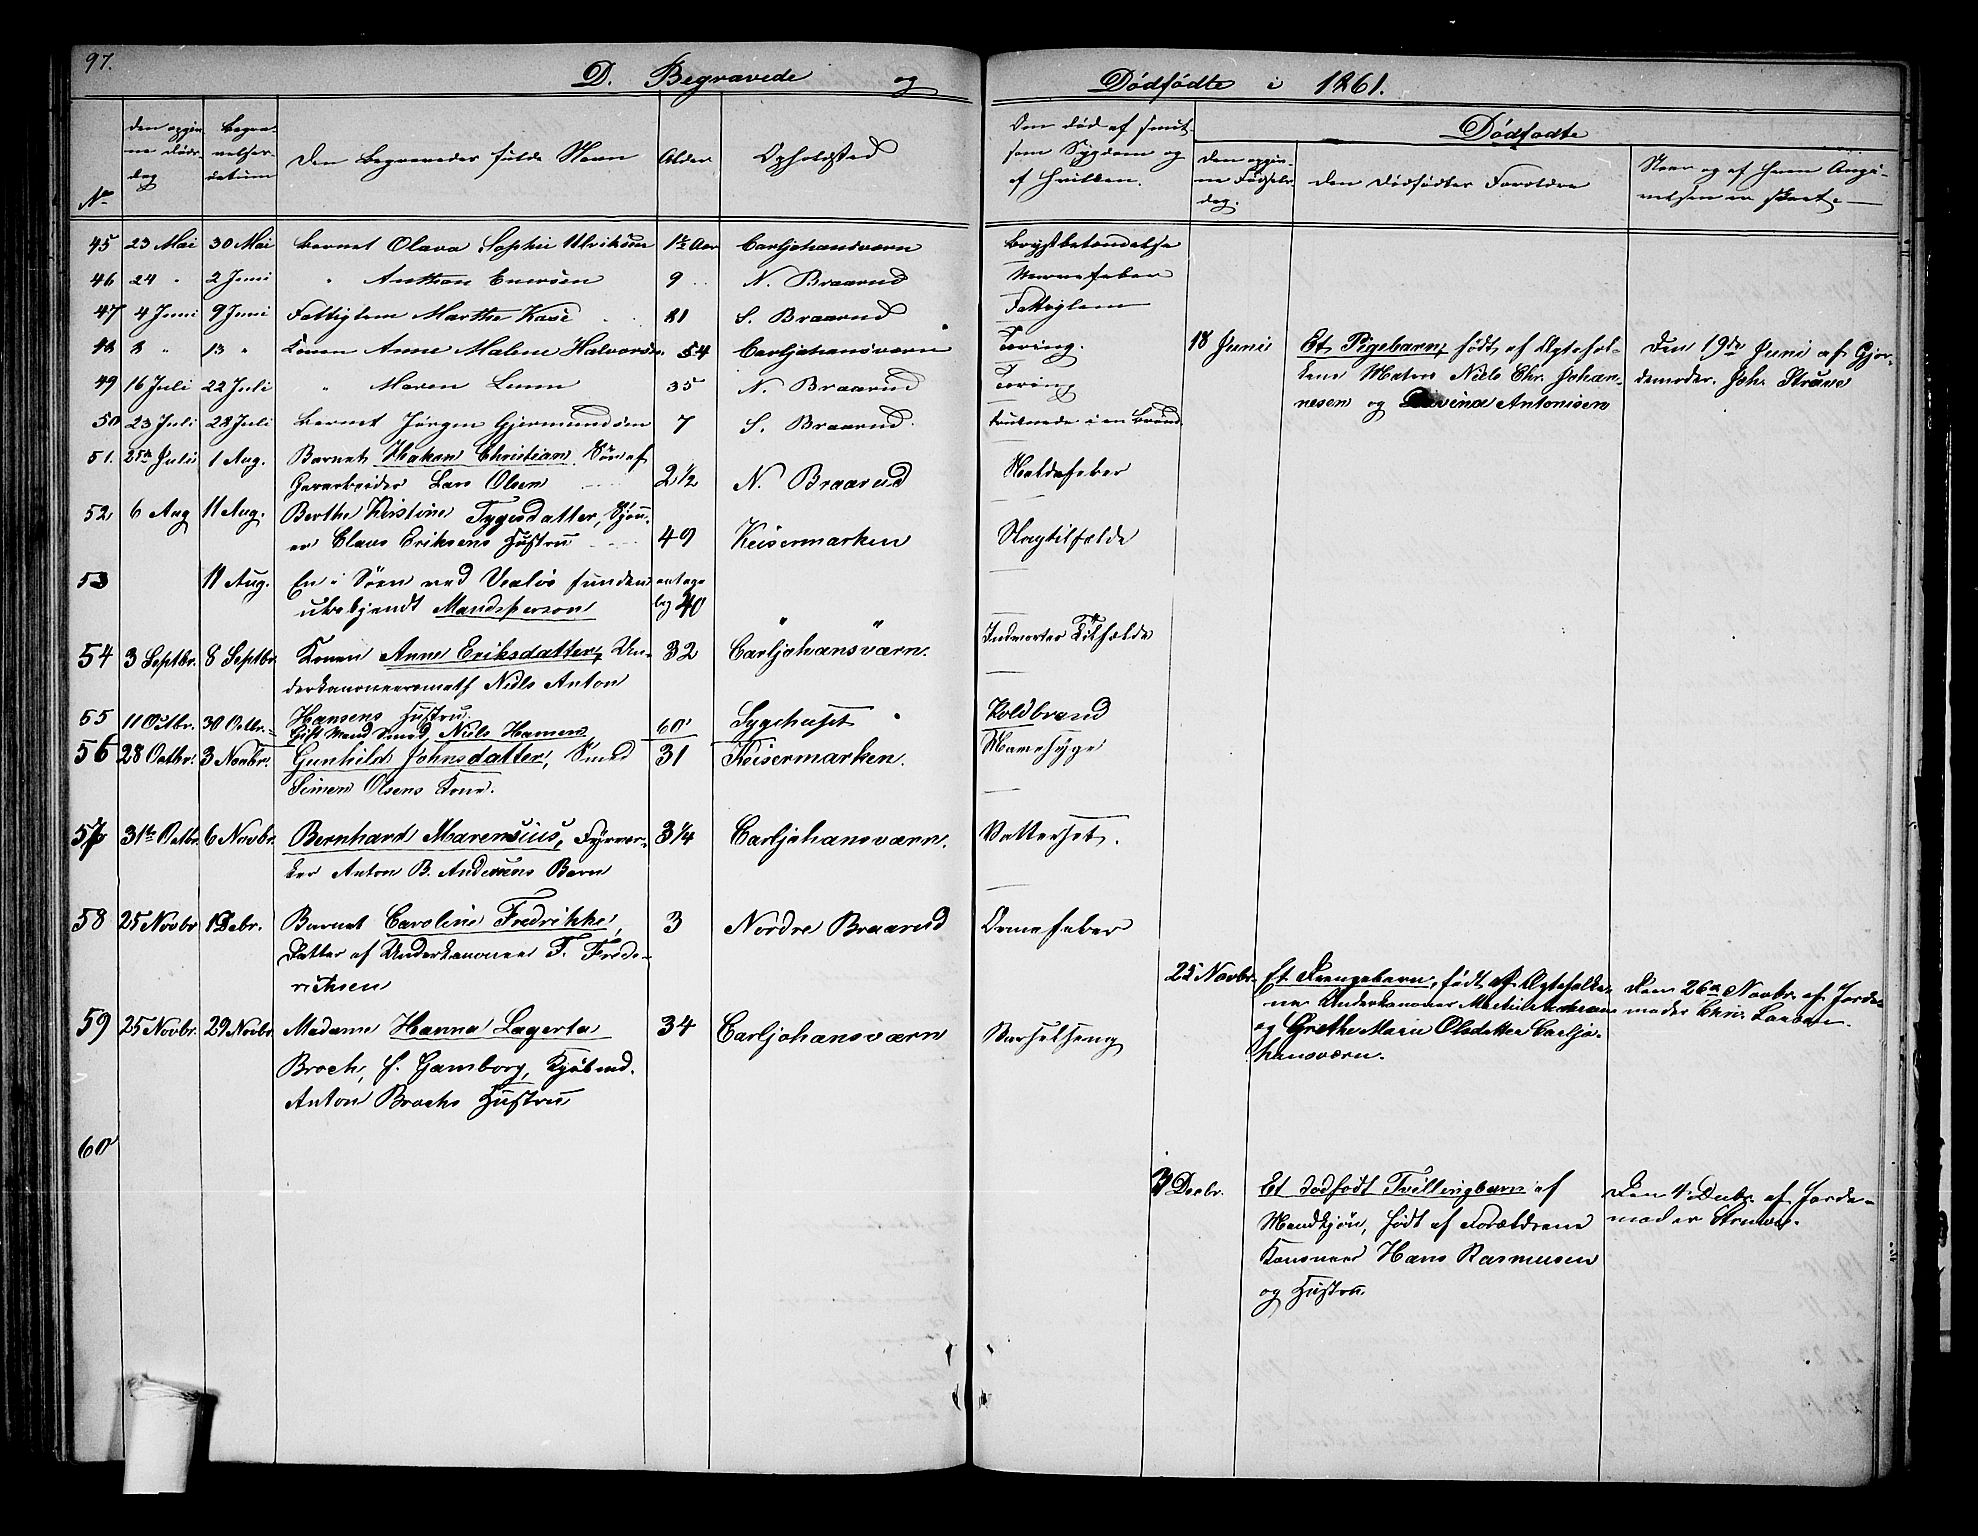 97.
D. Begravede og Dødfødte i 1861.
No
den opgivne Døds dag
Begravelses datum
Den Begravedes fulde Navn
Alder
Opholdsted
Om død af smitsom Sygdom og af hvilken.
Dødfødte
Den opgivne Fødsels dag.
Den Dødfødtes Forældre
Naar og af hvem Angivelsen er skeet.
45 23 Mai 30 Mai Barnet Olava Sophie Ulriksen 1½ Aar Carljohansværn Brystbetændelse
46 24 " 2 Juni " Anthon Enersen 9 N. Braarud Nervefeber
47 4 Juni 9 Juni Fattiglem Marthe Kase 81 S. Braarud Fattiglem
48 8 " 13 " Konen Anne Malene Halvorsen 54 Carljohansværn Tæring.
18 Juni Et Pigebarn, født af Ægtefol-
kene Matros Niels Chr. Johan-
nesen og Antonisen
Den 19de Juni af Gjor-
demoder. Joh. Struve
49 16 Juli 22 Juli " Maren 35 N. Braarud Tæring
50 23 Juli 28 Juli Barnet Jørgen Gjermundsen 7 S. Braarud. druknede i en Brønd
51. 25de Juli 1 Aug. Barnet Hakon Christian, Søn af
Lars Olsen 2 1/2 N. Braarud
52, 6 Aug 11 Aug. Berthe Kirstine Tygesdatter,
Claus Eriksens Hustru 49 Keisermarken Slagtilfælde
53 11 Aug. En i Søen ved Vealøs funden
ubekjendt Mandsperson antage
lig 40
54 3 Septbr. 8 Septbr. Konen Anne Eriksdatter, Un-
derkanoneersmath Niels Anton
Hansens Hustru 32 Carljohansværn. Indvortes Tilfælde
55 11 Octbr. 30 Octbr. Gift Mand Smed, Niels Hansen 60 Sygehuset Koldbrand
56 28 Octbr. 3 Novbr. Gunhild Johnsdatter, Smed
Simen Olsens Kone. 31 Keisermarken.
57 31te Octbr. 6 Novbr. Bernhard Marensius, Fyrver-
ker Anton B. Andersens Barn 3 1/4 Carljohansværn. Vattersot.
58 25 Novbr 1 Debr. Barnet Caroline Fredrikke,
Datter af Underkanoneer F. Frede-
riksen 3 Nordre Braarud
25 Novbr. Et Drengebarn, født af Ægtefolke-
ne Underkanoneer
og Grethe Marie Olsdatter Carljo-
hansværn.
Den 26de Novbr. af Jorde-
moder Chris.
59 25 Novbr. 29 Novbr. Madame Hanna Lagerta
Broch, f. Gamborg, Kjøbmd.
Anton Brochs Hustru 34 Carljohansværn Barselseng
60
3 Decbr. Et dødfødt Tvillingbarn af
Mandkjøn, født af Forældrene
Kanoneer Hans Rasmusen
og Hustru.
Den 4 Decbr. af Jorde-
moder Struve.